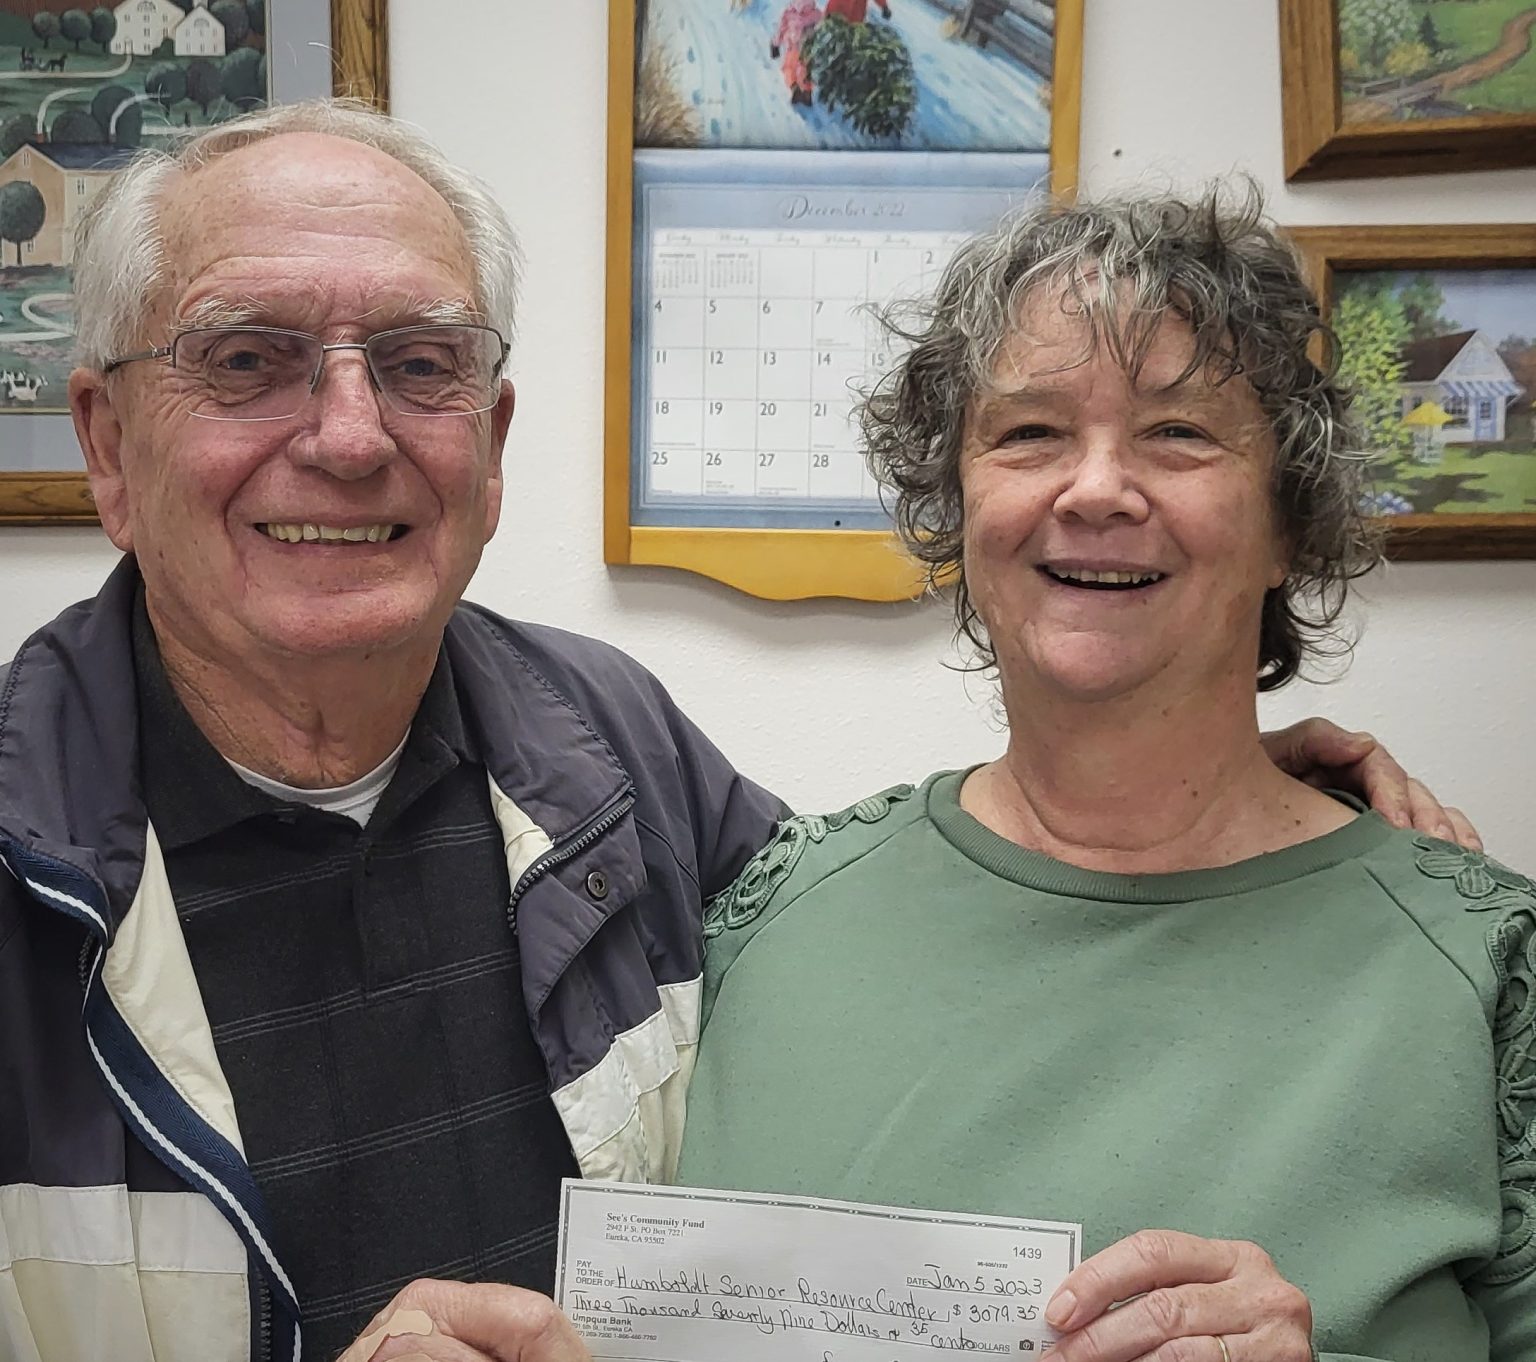 December 2022
1 2
4 5 6 7
11 12 13 14 15
18 19 20 21
25 26 27 28
See's Community Fund
2942 F St. PO Box 7221
Eureka, CA 95502
1439
PAY
TO THE
ORDER OF Humboldt Senior Resource Center $ 3079.35
DATE Jan 5 2023
Three Thousand Seventy Nine Dollars & 35 cents DOLLARS
Umpqua Bank